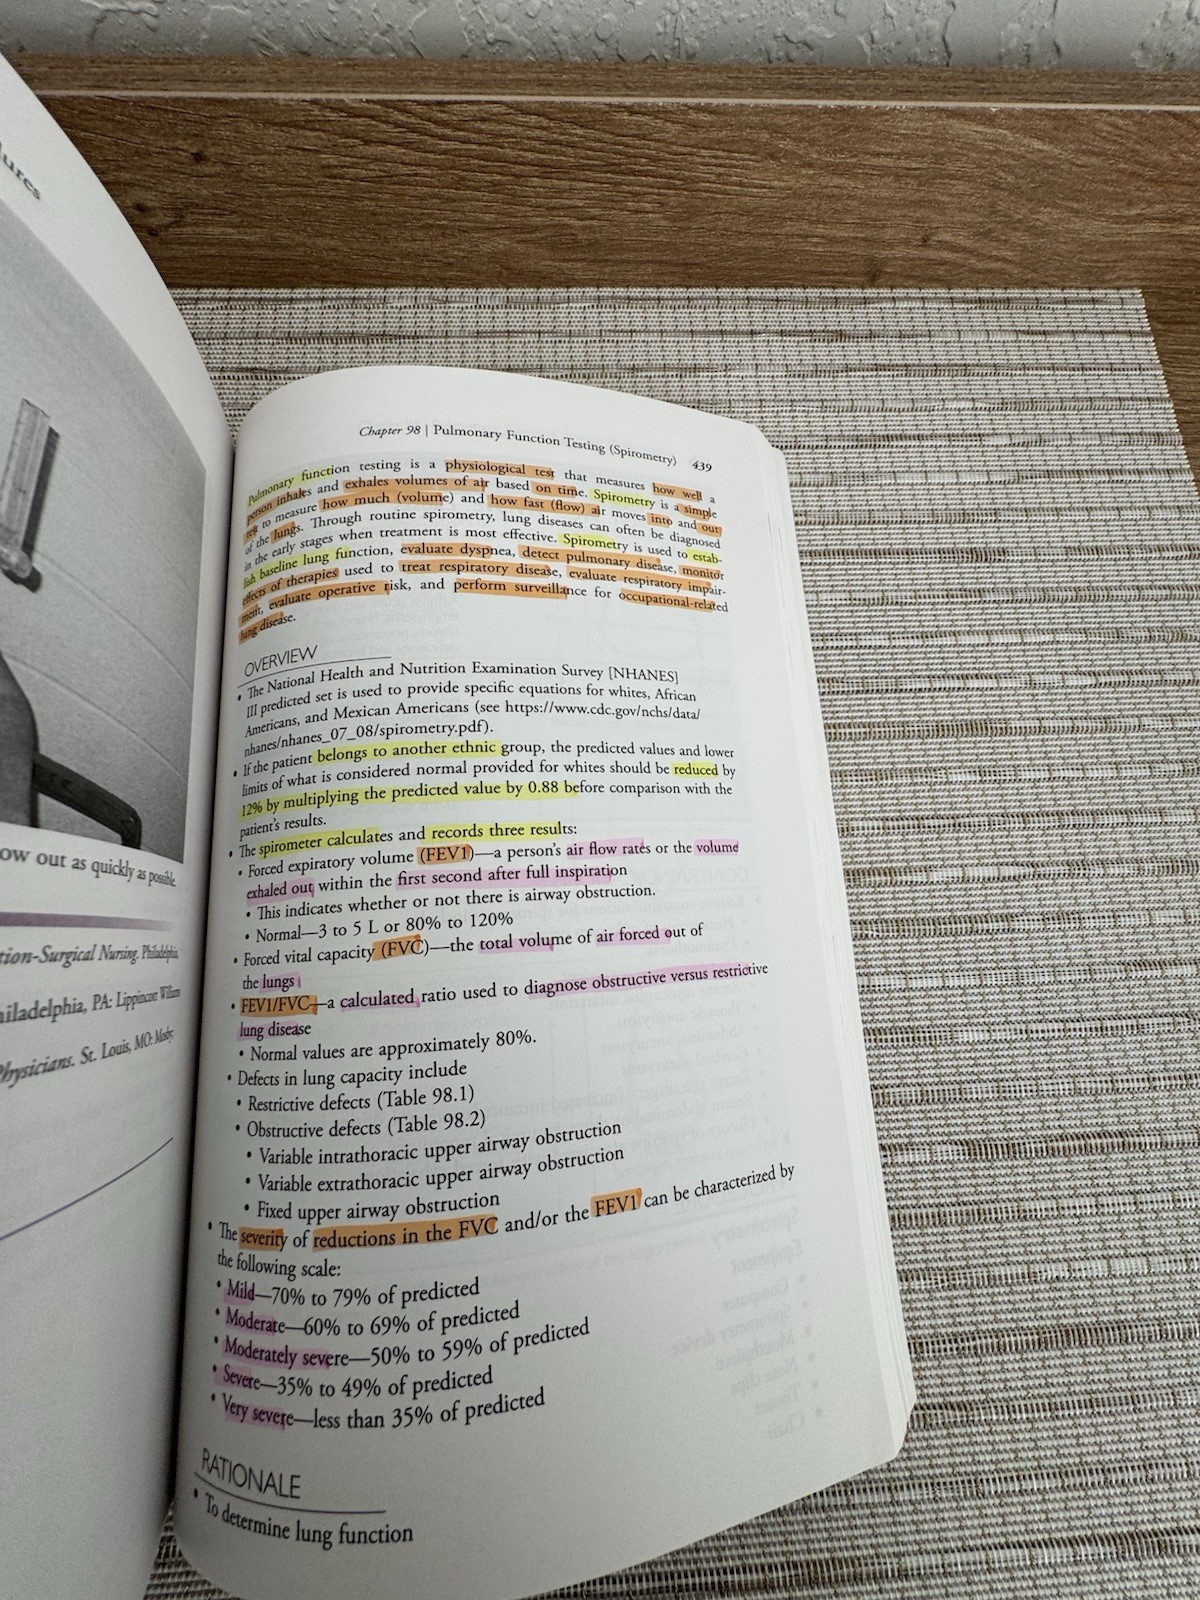 ures
ow out as quickly as possible.
tion-Surgical Nursing. Philadelphia,
hiladelphia, PA: Lippincott Williams
Physicians. St. Louis, MO: Mosby.
Chapter 98 | Pulmonary Function Testing (Spirometry) 439
Pulmonary function testing is a physiological test that measures how well a
person inhales and exhales volumes of air based on time. Spirometry is a simple
test to measure how much (volume) and how fast (flow) air moves into and out
of the lungs. Through routine spirometry, lung diseases can often be diagnosed
in the early stages when treatment is most effective. Spirometry is used to estab-
lish baseline lung function, evaluate dyspnea, detect pulmonary disease, monitor
effects of therapies used to treat respiratory disease, evaluate respiratory impair-
ment, evaluate operative risk, and perform surveillance for occupational-related
lung disease.
OVERVIEW
• The National Health and Nutrition Examination Survey [NHANES]
III predicted set is used to provide specific equations for whites, African
Americans, and Mexican Americans (see https://www.cdc.gov/nchs/data/
nhanes/nhanes_07_08/spirometry.pdf).
• If the patient belongs to another ethnic group, the predicted values and lower
limits of what is considered normal provided for whites should be reduced by
12% by multiplying the predicted value by 0.88 before comparison with the
patient's results.
• The spirometer calculates and records three results:
• Forced expiratory volume (FEV1)—a person's air flow rates or the volume
exhaled out within the first second after full inspiration
• This indicates whether or not there is airway obstruction.
• Normal—3 to 5 L or 80% to 120%
• Forced vital capacity (FVC)—the total volume of air forced out of
the lungs
• FEV1/FVC—a calculated ratio used to diagnose obstructive versus restrictive
lung disease
• Normal values are approximately 80%.
• Defects in lung capacity include
• Restrictive defects (Table 98.1)
• Obstructive defects (Table 98.2)
• Variable intrathoracic upper airway obstruction
• Variable extrathoracic upper airway obstruction
• Fixed upper airway obstruction
• The severity of reductions in the FVC and/or the FEV1 can be characterized by
the following scale:
• Mild—70% to 79% of predicted
• Moderate—60% to 69% of predicted
• Moderately severe—50% to 59% of predicted
• Severe—35% to 49% of predicted
• Very severe—less than 35% of predicted
RATIONALE
• To determine lung function